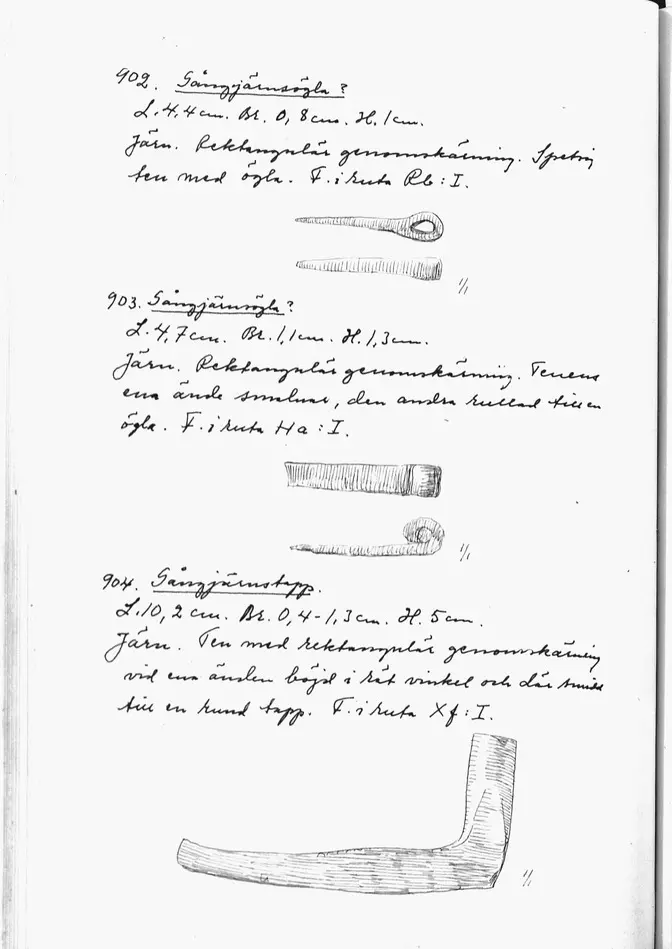 902. Gångjärnsögla?
L. 4,4 cm. Br. 0,8 cm. H. 1 cm.
Järn. Rektangulär genomskärning. Spetsig
ten med ögla. F. i ruta Rb : I.
1/1
903. Gångjärnsögla?
L. 4,7 cm. Br. 1,1 cm. H. 1,3 cm.
Järn. Rektangulär genomskärning. Tenens
ena ände smalnar, den andra rullad till en
ögla. F. i ruta Ha : I.
1/1
904. Gångjärnstapp.
L. 10,2 cm. Br. 0,4-1,3 cm. H. 5 cm.
Järn. Ten med rektangulär genomskärning
vid ena änden böjd i rät vinkel och där smidd
till en rund tapp. F. i ruta Xf : I.
1/1